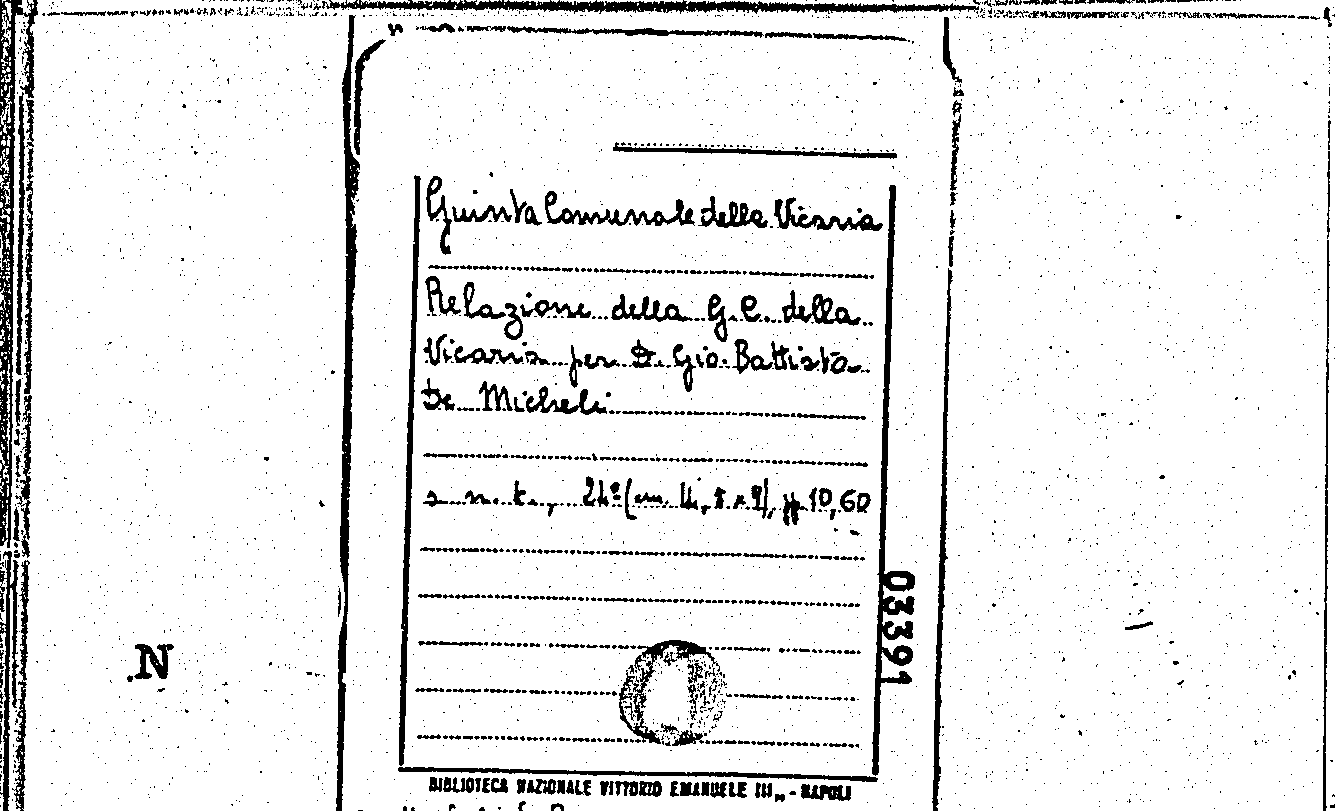 Guinta Comunale della Vicaria
Relazione della G. C. della
Vicaria per D. Gio. Battista
De Micheli
s. n. t., 24º (cm. 14,5 x 9), pp. 10,60
03391
N
BIBLIOTECA NAZIONALE VITTORIO EMANUELE III„ - NAPOLI